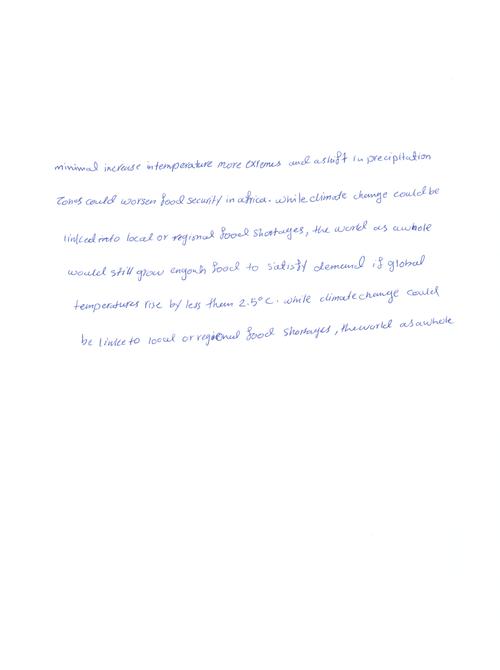 minimal increase intemperature more extems and ashift in precipitation
Zones could worsen food security in africa. while climate change could be
linked mto local or regional food shortages, the world as awhole
would still grow engouh food to siatisfy demend if global
temperatures rise by less them 2.5°c. while climate change could
be linke to local or regional food shortages, the world as awhole